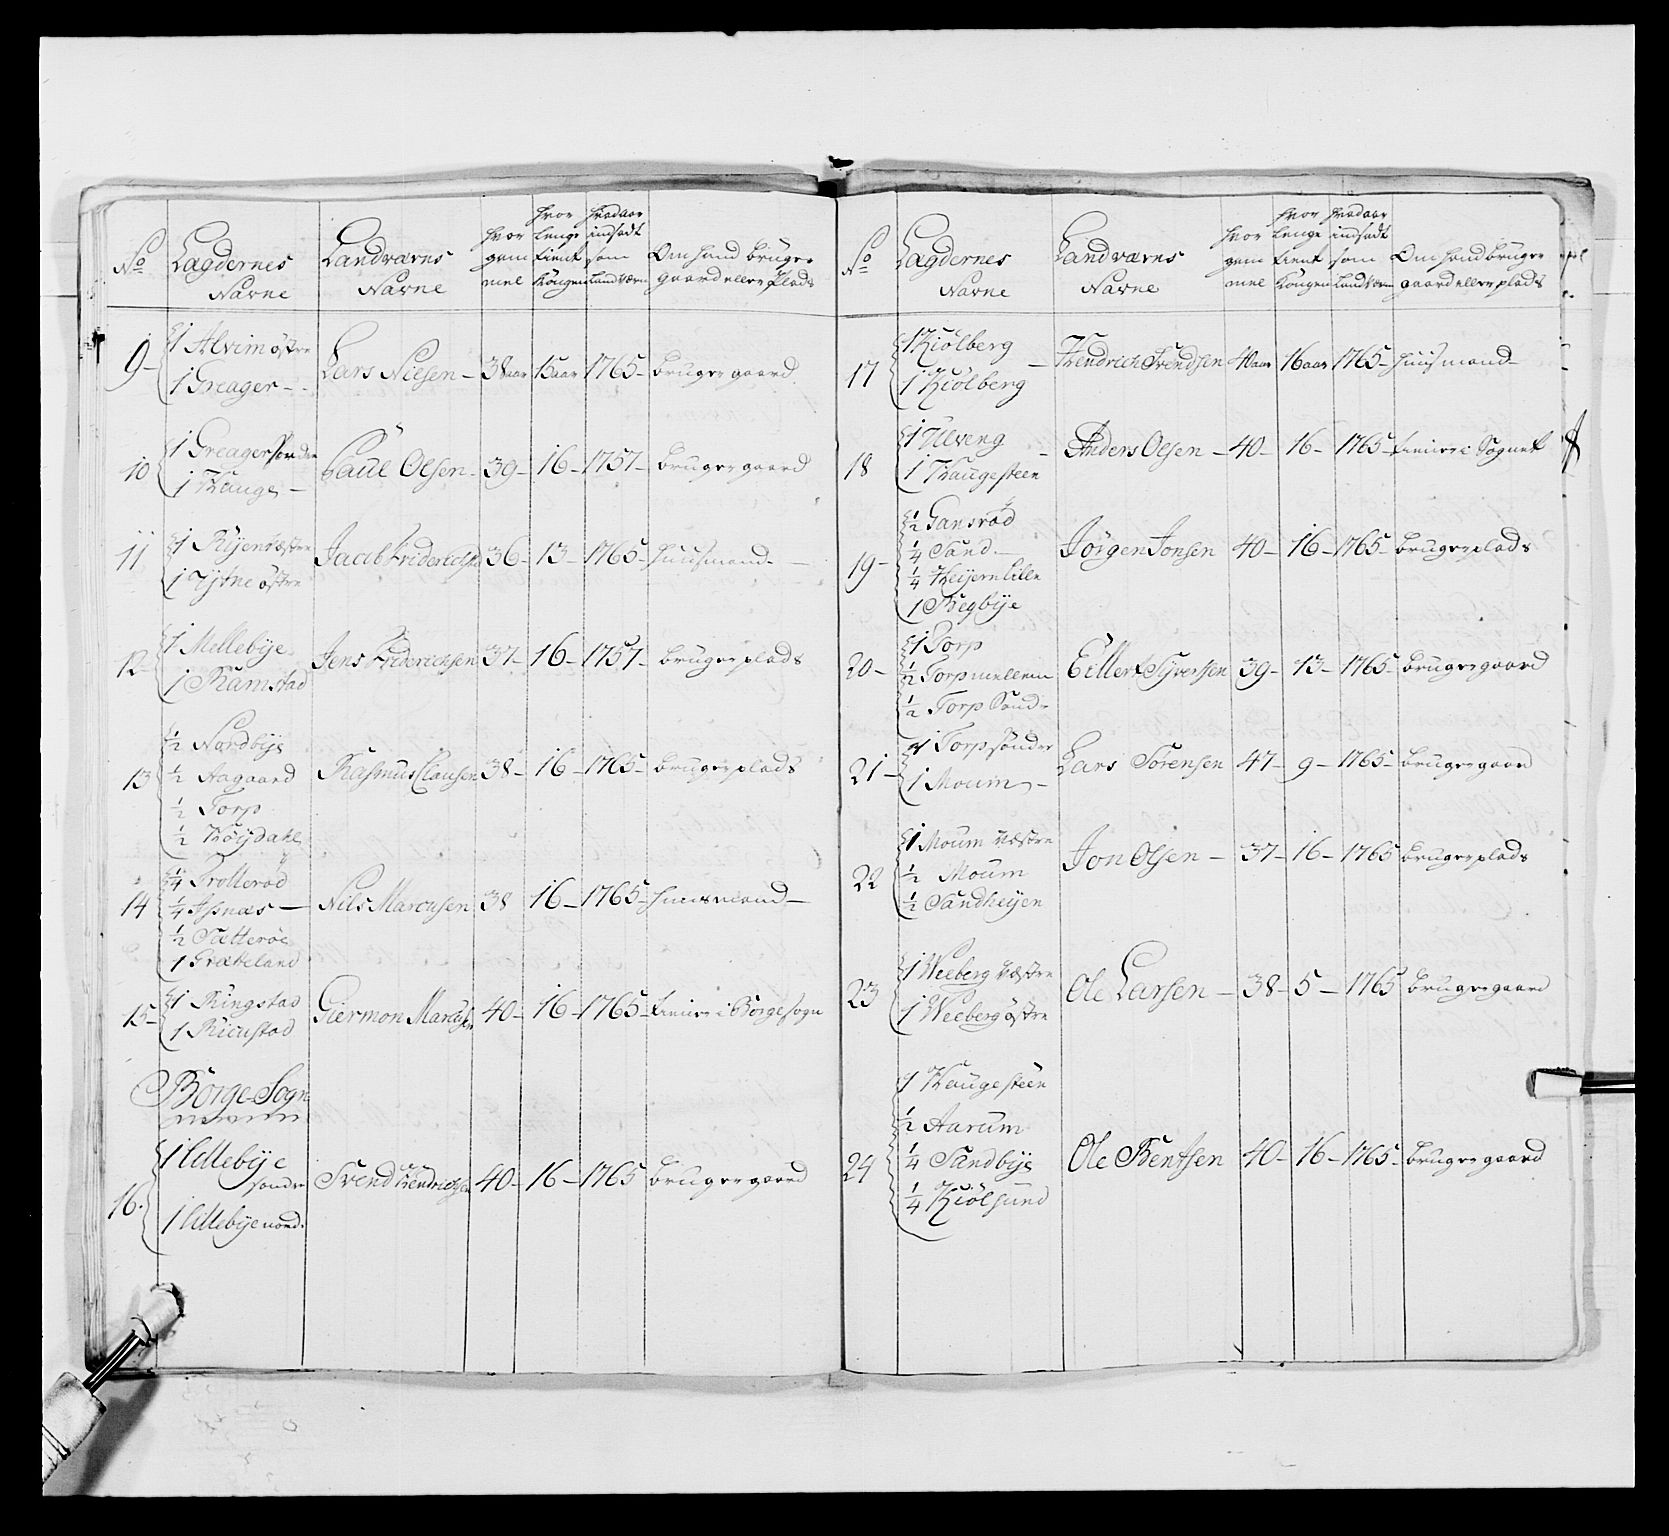 No
Lægdernes
Navne
Landværns
Navne
hvor
gam
mel
hvor
lenge
tient
Kongen
hvadaar
indsadt
som
Landværn
Om hand bruger
gaard eller plads
9 – 1 Alvim østre
1 Greager – Lars Nielsen – 38 aar 15 aar 1765 – bruger gaard
10 1 Greager Sondre
1 Hauge – Paul Olsen – 39 – 16 – 1757 – bruger gaard
11 1 Kijen væstre
1 østre Jacob Friderichs 36 – 13 – 1765 – huusmand –
12 – 1 Mellebÿe
1 Ramstad Jens Friderichsen 37 – 16 – 1757 – bruger plads
13 ½ Nordbÿe
½ Aagaard Rasmus Clausen 38 – 16 – 1765 – bruger plads
½ Torp
½ Høÿdahl
14 ¼ Trotterød
¼ Assnæs – Nils Marcusen 38 16 – 1765 – huusmand –
½ Sætterøe
1 Græteland
15 – 1 Ringstad
1 Ricustad Giermon Marcus 40 – 16 – 1765 – tiener i Borge sogn
Borge Sogn
16. 1 Lillebÿe
sondre Svend Hendrichsen 40 – 16 – 1765 bruger gaard
1 Lillebÿe nord.
No
Lægdernes
Navne
Landværns
Navne
hvor
gam
mel
hvor
lenge
tient
Kongen
hvadaar
indsadt
som
Landværn
Om hand bruger
gaard eller plads
17 1 Kiølberg
1 Kiølberg – Hendrich Svendsen 40 aar 16 aar 1765 – huusmand –
18 1 Ulveng
1 Haugesteen – Anders Olsen – 40 – 16 – 1765 – tiener i Sognet
19 – ½ Gansrød
¼ Sand – Jørgen Jonsen 40 – 16 – 1765 – bruger plads
¼ Heÿern lille
1 Begbÿe
20 – 1 Torp
½ Torp mellem Eillert Sÿversen 39 – 13 – 1765 – bruger gaard
½ Torp Sond –
21 – 1 Torp søndre
1 Moum – Lars Sørensen 47 – 9 – 1765 – bruger gaard
22 1 Moum Væstre
½ Moum Jon Olsen – 37 – 16 – 1765 bruger plads
½ Sandheÿen
23 1 Weeberg Væstre
1 Weeberg østre Ole Larsen – 38 – 5 – 1765 bruger gaard
24 1 Haugesteen
½ Aarum
¼ Sandbÿe Ole Bentsen 40 – 16 – 1765 – bruger gaard
¼ Kiølsund